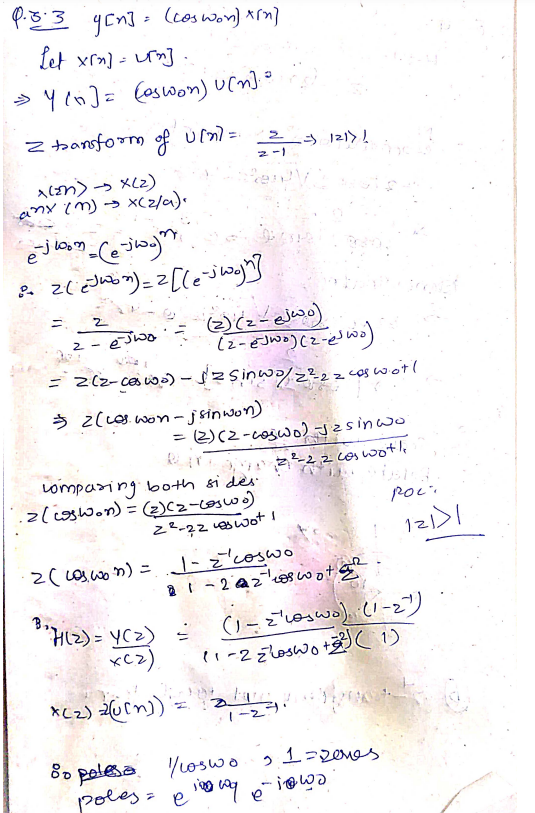 Q.5.3 y[n] = (cosω0n) x[n]
Let x[n] = u[n].
⇒ y[n] = (cosω0n) u[n].
Z transform of u[n] = z/(z-1) ⇒ |z|>1
x(n) → X(z)
aⁿx(n) → X(z/a).
e^(-jω0n) = (e^(-jω0))^n
∴ z(e^(-jω0n)) = z[(e^(-jω0))^n]
= z/(z - e^(-jω0)) = (z)(z - e^(jω0))/((z - e^(-jω0))(z - e^(jω0)))
= z(z-cosω0) - jz sinω0/z²-2z cosω0+1
⇒ z(cosω0n - jsinω0n)
= (z)(z-cosω0) - jz sinω0/(z²-2z cosω0+1)
comparing both sides.
z(cosω0n) = (z)(z-cosω0)/(z²-2z cosω0+1)
ROC:
|z|>1
z(cosω0n) = (1-z⁻¹cosω0)/(1-2z⁻¹cosω0+z⁻²)
H(z) = Y(z)/X(z) = (1-z⁻¹cosω0)(1-z⁻¹)/((1-2z⁻¹cosω0+z⁻²)(1))
X(z) z(u(n)) = /(1-z⁻¹).
So 1/cosω0, 1 = zeroes
poles = e^(jω0), e^(-jω0)